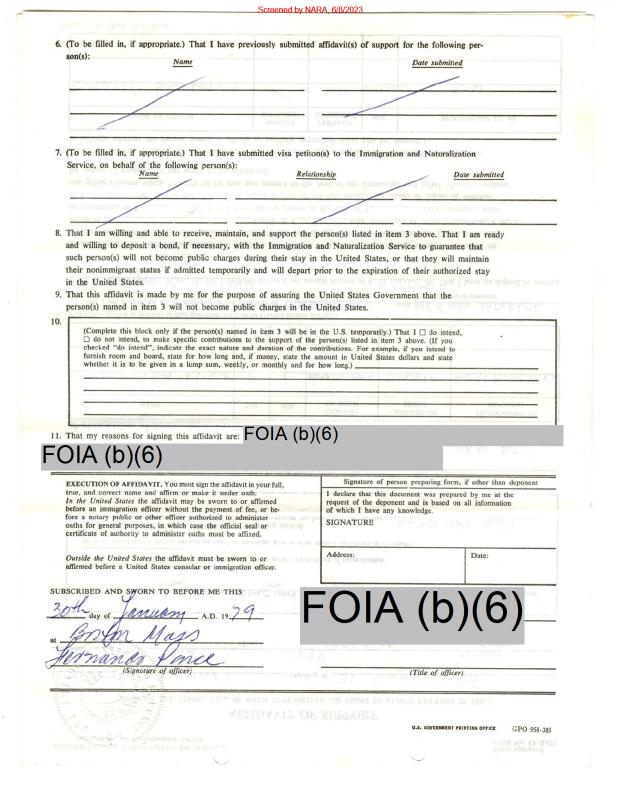 Screened by NARA, 6/8/2023
6. (To be filled in, if appropriate.) That I have previously submitted affidavit(s) of support for the following per-
son(s):
Name Date submitted
7. (To be filled in, if appropriate.) That I have submitted visa petiton(s) to the Immigration and Naturalization
Service, on behalf of the following person(s):
Name Relationship Date submitted
8. That I am willing and able to receive, maintain, and support the person(s) listed in item 3 above. That I am ready
and willing to deposit a bond, if necessary, with the Immigration and Naturalization Service to guarantee that
such person(s) will not become public charges during their stay in the United States, or that they will maintain
their nonimmigrant status if admitted temporarily and will depart prior to the expiration of their authorized stay
in the United States.
9. That this affidavit is made by me for the purpose of assuring the United States Government that the
person(s) named in item 3 will not become public charges in the United States.
10.
(Complete this block only if the person(s) named in item 3 will be in the U.S. temporarily.) That I ☐ do intend,
☐ do not intend, to make specific contributions to the support of the person(s) listed in item 3 above. (If you
checked "do intend", indicate the exact nature and duration of the contributions. For example, if you intend to
furnish room and board, state for how long and, if money, state the amount in United States dollars and state
whether it is to be given in a lump sum, weekly, or monthly and for how long.)
11. That my reasons for signing this affidavit are: FOIA (b)(6)
FOIA (b)(6)
EXECUTION OF AFFIDAVIT. You must sign the affidavit in your full,
true, and correct name and affirm or make it under oath.
In the United States the affidavit may be sworn to or affirmed
before an immigration officer without the payment of fee, or be-
fore a notary public or other officer authorized to administer
oaths for general purposes, in which case the official seal or
certificate of authority to administer oaths must be affixed.
Outside the United States the affidavit must be sworn to or
affirmed before a United States consular or immigration officer.
Signature of person preparing form, if other than deponent
I declare that this document was prepared by me at the
request of the deponent and is based on all information
of which I have any knowledge.
SIGNATURE
Address: Date:
SUBSCRIBED AND SWORN TO BEFORE ME THIS
30th day of January A.D. 1979
at Boston Mass
Fernando Ponce
(Signature of officer)
FOIA (b)(6)
(Title of officer)
U.S. GOVERNMENT PRINTING OFFICE GPO 958-385